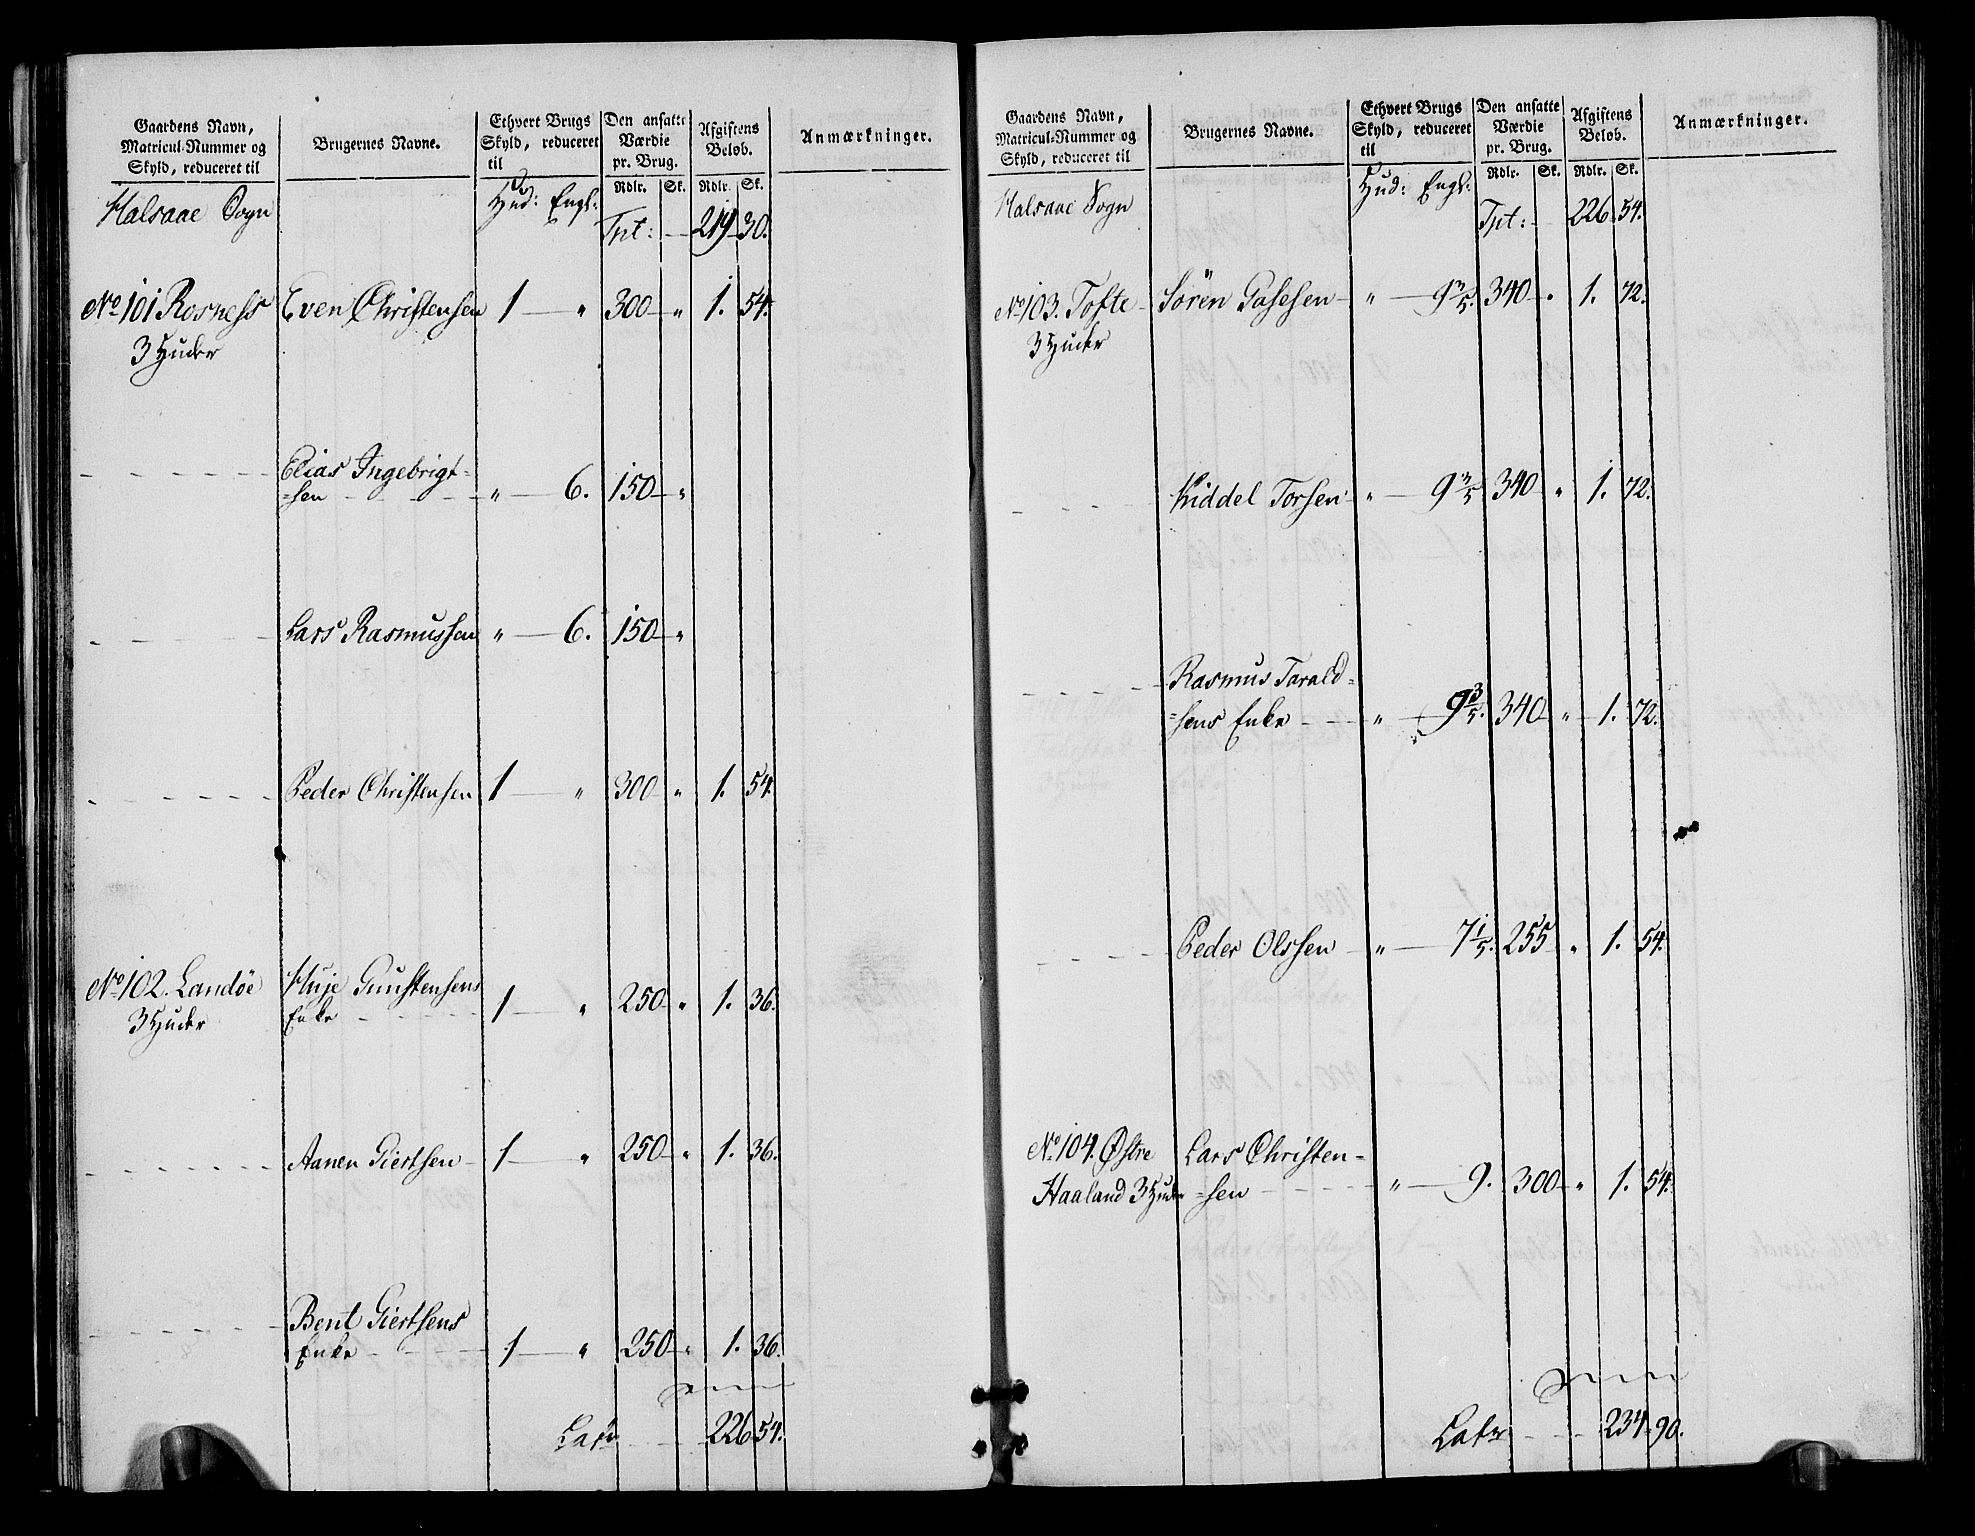 Gaardens Navn,
Matricul-Nummer og
Skyld, reduceret til
Brugernes Navne.
Ethvert Brugs
Skyld, reduceret
til
Den ansatte
Værdie
pr. Brug.
Afgiftens
Beløb.
Anmærkninger.
Rdlr. Sk. Rdlr. Sk.
Halsaae Sogn Hud: Engl:
Tpt: 219 30.
No 101 Rosness Even Christensen 1 — " 300 — " 1. 54.
3 Huder
Elias Ingebrigt-
-sen " — 6. 150 — "
Lars Rasmussen " — 6. 150 — "
Peder Christensen 1 — " 300 " 1. 54.
No 102. Landøe Huje Gunstensens
3 Huder Enke 1 — " 250 " 1. 36.
Aanen Giertsen 1 — " 250 — " 1. 36.
Bent Giertsens
Enke 1 — " 250 — " 1. 36.
Lat. 226 54.
Gaardens Navn,
Matricul-Nummer og
Skyld, reduceret til
Brugernes Navne.
Ethvert Brugs
Skyld, reduceret
til
Den ansatte
Værdie
pr. Brug.
Afgiftens
Beløb.
Anmærkninger.
Rdlr. Sk. Rdlr. Sk.
Halsaae Sogn Hud: Engl:
Tpt: 226. 54.
No 103. Tofte Sören — " — 9 3/5. 340 — " 1. 72.
3 Huder
Kiddel Torsen " — 9 3/5 340 " 1. 72.
Rasmus Tarald-
-sens Enke " — 9 3/5. 340 " 1. 72.
Peder Olssen " — 7 1/5. 255 " 1. 54.
No 104. Østre Lars Christen-
Haaland 3 Huder -sen " — 9. 300 — " 1. 54.
Later 234 90.